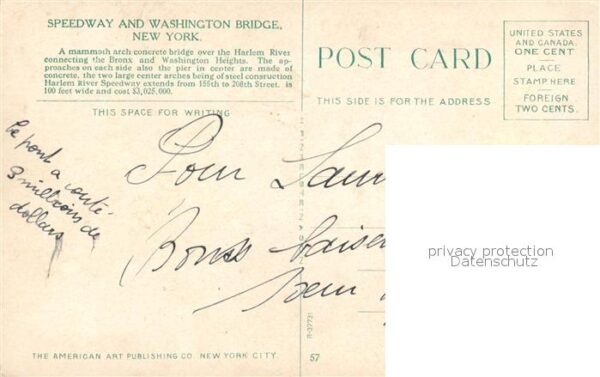 SPEEDWAY AND WASHINGTON BRIDGE,
NEW YORK.
A mammoth arch concrete bridge over the Harlem River
connecting the Bronx and Washington Heights. The ap-
proaches on each side also the pier in center are made of
concrete, the two large center arches being of steel consruction
Harlem River Speedway extends from 155th to 208th Street. is
100 feet wide and cost $3,025,000.
THIS SPACE FOR WRITING
POST CARD
THIS SIDE IS FOR THE ADDRESS
UNITED STATES
AND CANADA
ONE CENT
PLACE
STAMP HERE
FOREIGN
TWO CENTS.
le pont a couté
3 millions de
dollars
Pour
Bons baiser
privacy protection
Datenschutz
R-37731
THE AMERICAN ART PUBLISHING CO. NEW YORK CITY.
57